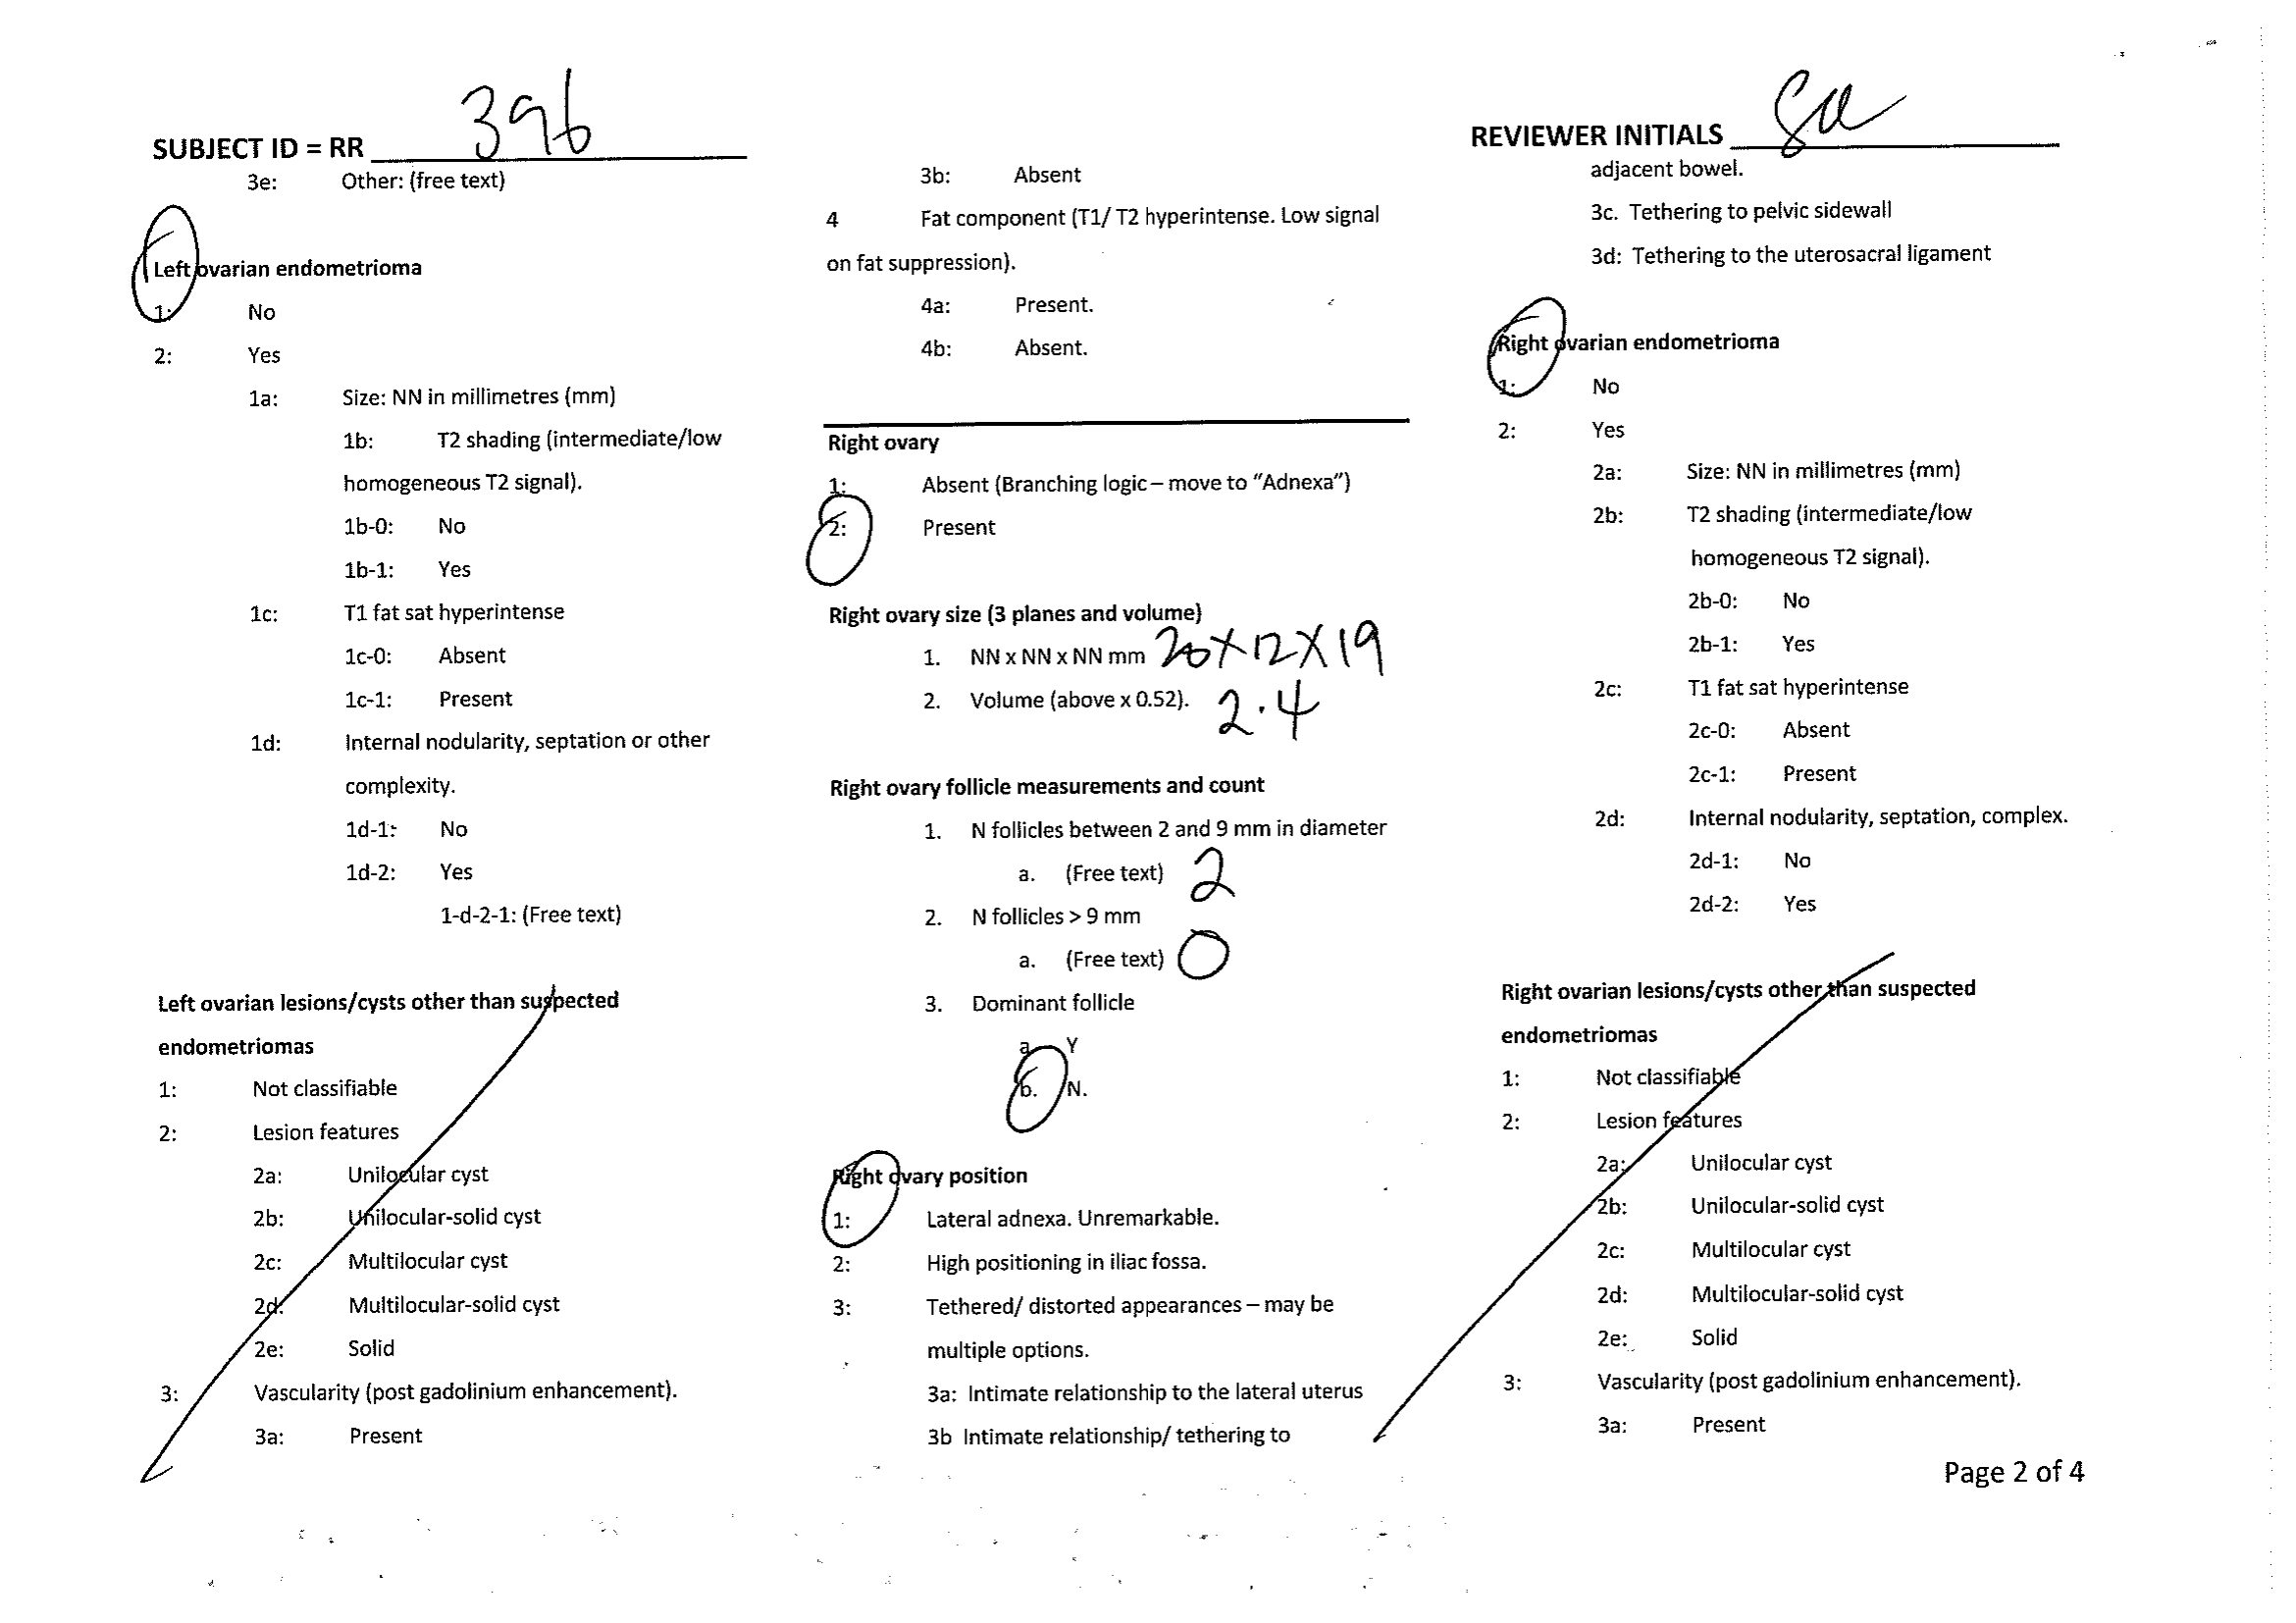 SUBJECT ID = RR 396
3e: Other: (free text)
Left ovarian endometrioma
1: No
2: Yes
1a: Size: NN in millimetres (mm)
1b: T2 shading (intermediate/low
homogeneous T2 signal).
1b-0: No
1b-1: Yes
1c: T1 fat sat hyperintense
1c-0: Absent
1c-1: Present
1d: Internal nodularity, septation or other
complexity.
1d-1: No
1d-2: Yes
1-d-2-1: (Free text)
Left ovarian lesions/cysts other than suspected
endometriomas
1: Not classifiable
2: Lesion features
2a: Unilocular cyst
2b: Unilocular-solid cyst
2c: Multilocular cyst
2d: Multilocular-solid cyst
2e: Solid
3: Vascularity (post gadolinium enhancement).
3a: Present
3b: Absent
4 Fat component (T1/ T2 hyperintense. Low signal
on fat suppression).
4a: Present.
4b: Absent.
Right ovary
1: Absent (Branching logic – move to “Adnexa”)
2: Present
Right ovary size (3 planes and volume)
1. NN x NN x NN mm 20 X 12 X 19
2. Volume (above x 0.52). 2.4
Right ovary follicle measurements and count
1. N follicles between 2 and 9 mm in diameter
a. (Free text) 2
2. N follicles > 9 mm
a. (Free text) 0
3. Dominant follicle
a. Y
b. N.
Right ovary position
1: Lateral adnexa. Unremarkable.
2: High positioning in iliac fossa.
3: Tethered/ distorted appearances – may be
multiple options.
3a: Intimate relationship to the lateral uterus
3b Intimate relationship/ tethering to
REVIEWER INITIALS
adjacent bowel.
3c. Tethering to pelvic sidewall
3d: Tethering to the uterosacral ligament
Right ovarian endometrioma
1: No
2: Yes
2a: Size: NN in millimetres (mm)
2b: T2 shading (intermediate/low
homogeneous T2 signal).
2b-0: No
2b-1: Yes
2c: T1 fat sat hyperintense
2c-0: Absent
2c-1: Present
2d: Internal nodularity, septation, complex.
2d-1: No
2d-2: Yes
Right ovarian lesions/cysts other than suspected
endometriomas
1: Not classifiable
2: Lesion features
2a: Unilocular cyst
2b: Unilocular-solid cyst
2c: Multilocular cyst
2d: Multilocular-solid cyst
2e: Solid
3: Vascularity (post gadolinium enhancement).
3a: Present
Page 2 of 4